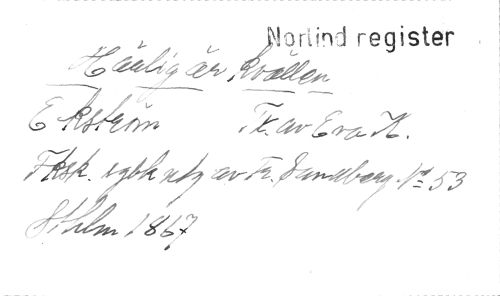 Norlind register
Härlig är kvällen
Ekström Tx. av Eva K.
Fksk. sgbk utg av Fr. Sandberg. No 53
Sthlm 1867